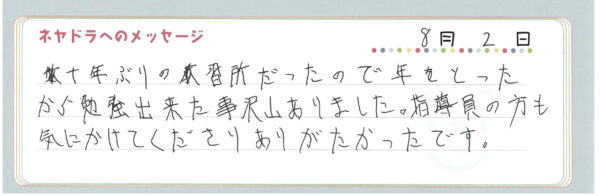 ネヤドラへのメッセージ
8月 2日
数十年ぶりの教習所だったので年をとった
から勉強出来た事沢山ありました。指導員の方も
気にかけてくださりありがたかったです。